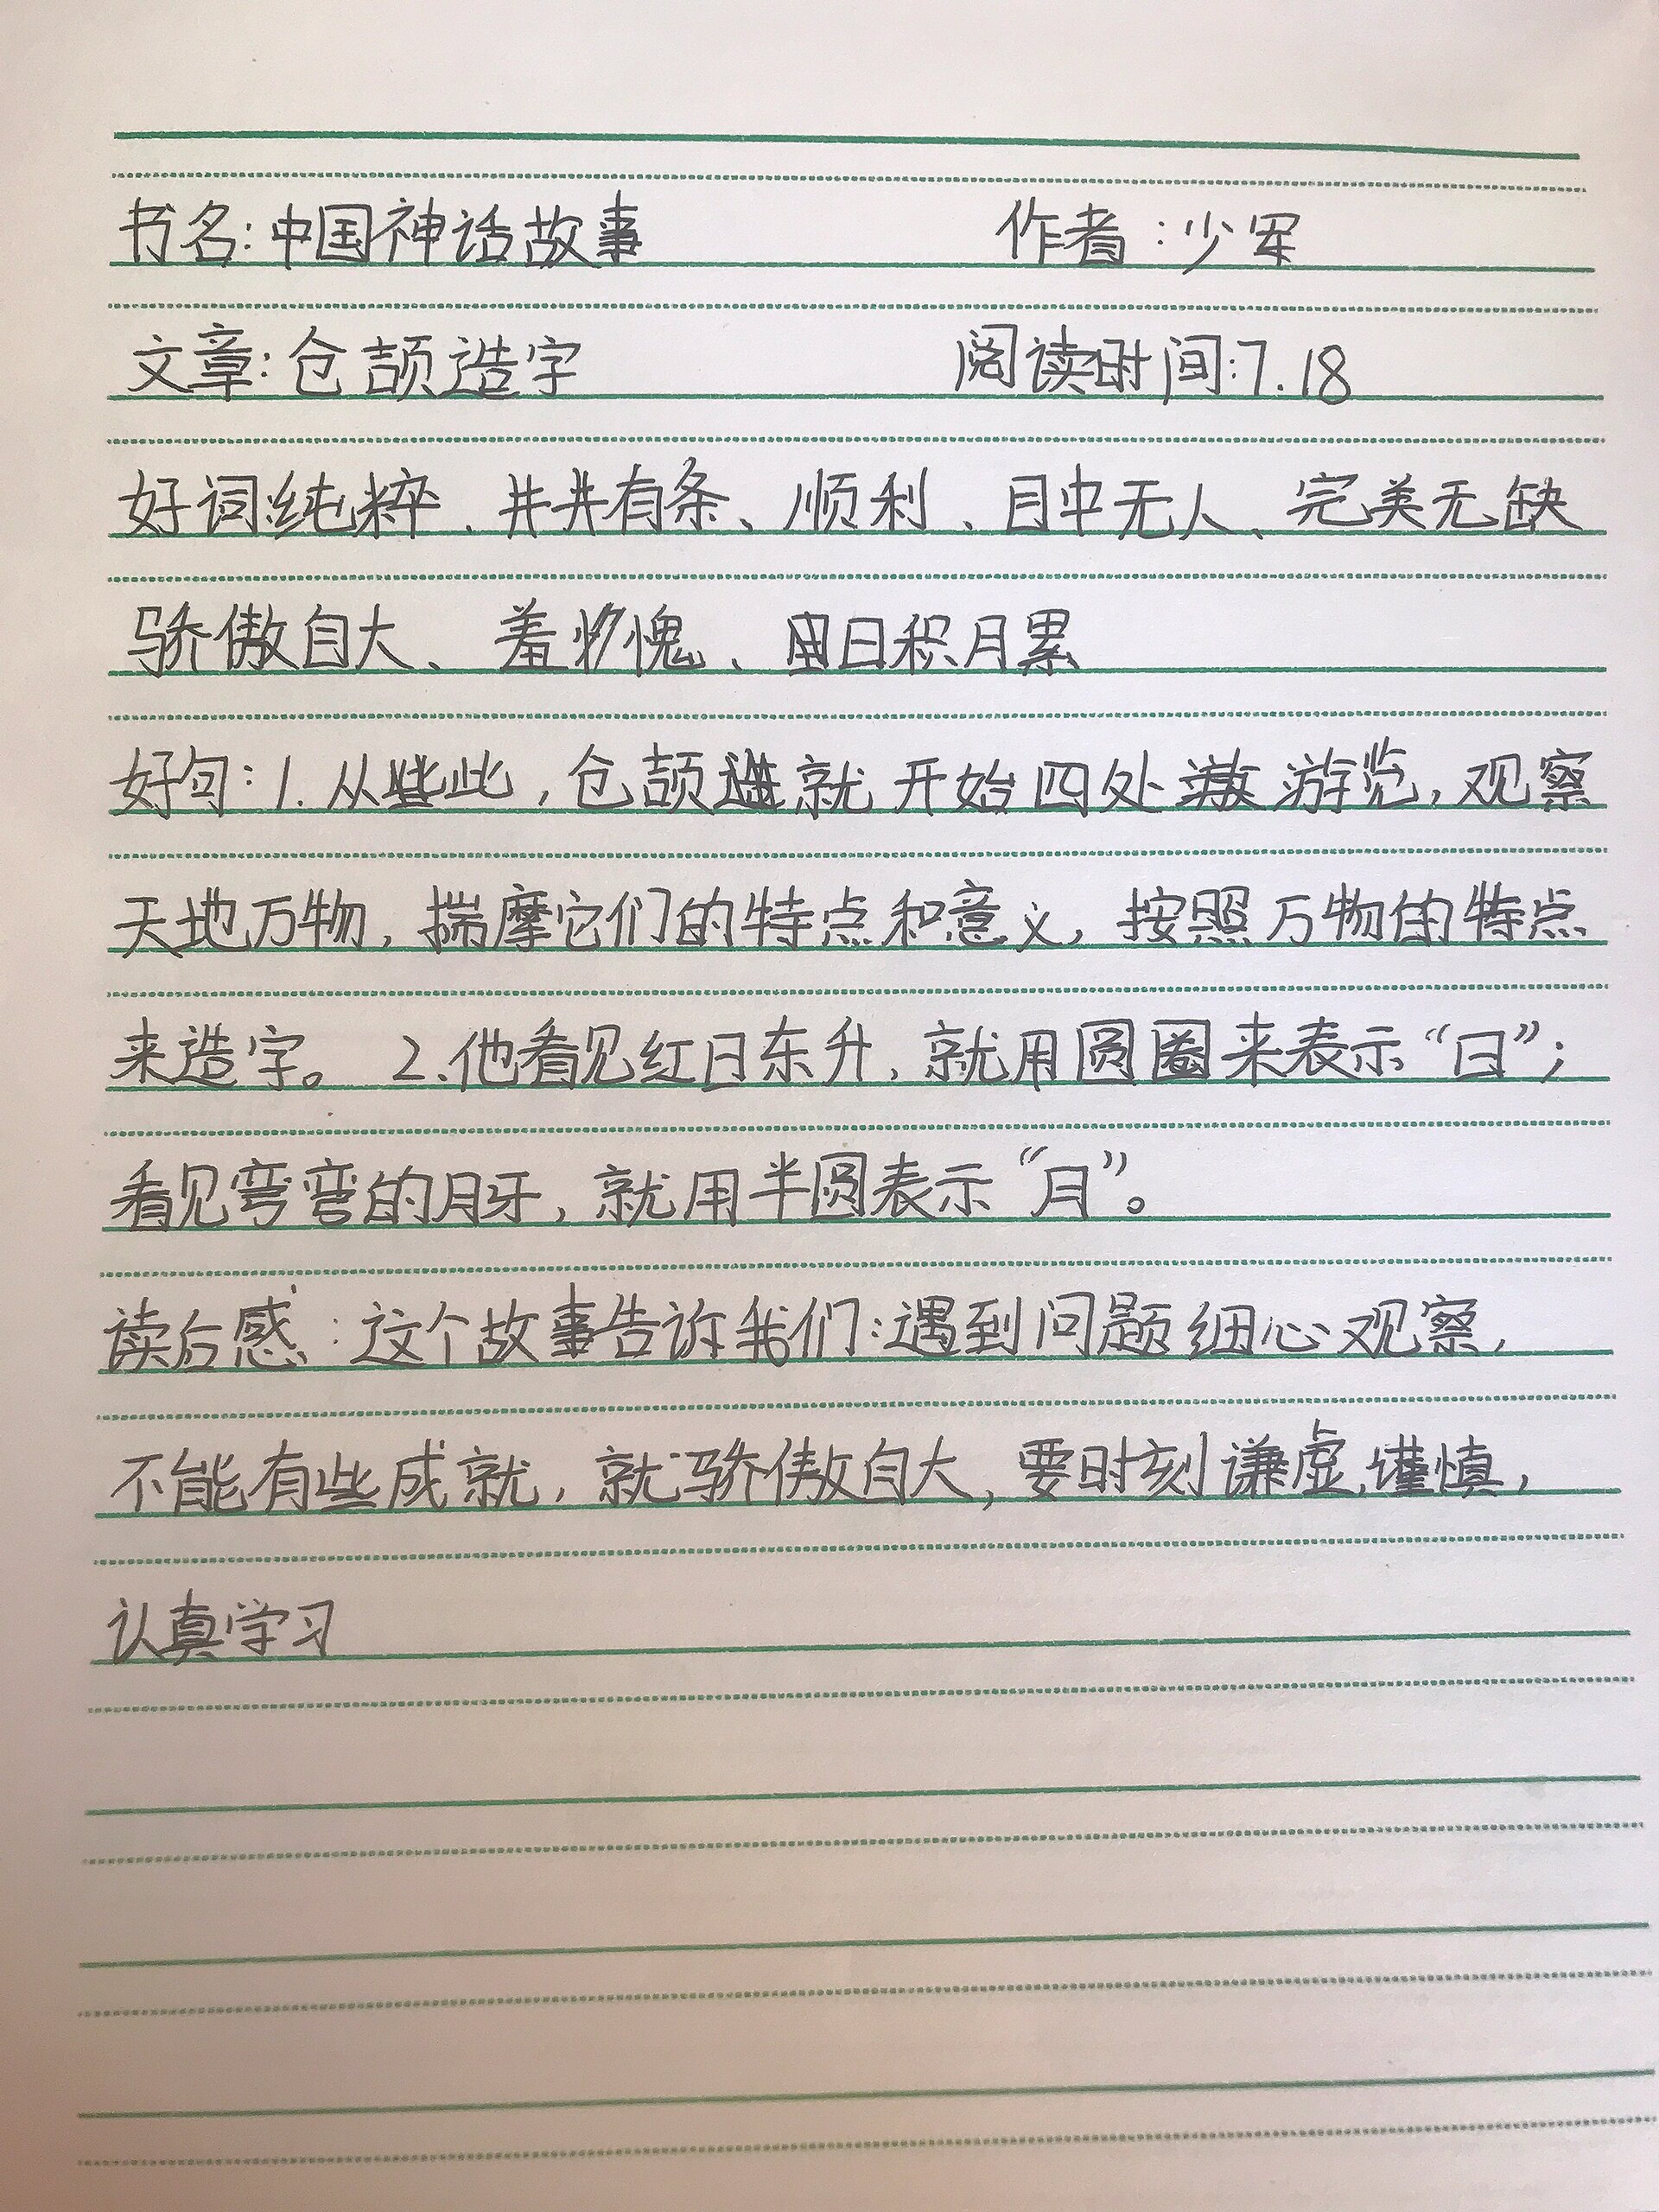 书名:中国神话故事 作者:少军
文章:仓颉造字 阅读时间:7.18
好词:纯粹、井井有条、顺利、目中无人、完美无缺
骄傲自大、羞愧、日积月累
好句:1.从此,仓颉就开始四处游览,观察
天地万物,揣摩它们的特点和意义,按照万物的特点
来造字。 2.他看见红日东升,就用圆圈来表示“日”;
看见弯弯的月牙,就用半圆表示“月”。
读后感:这个故事告诉我们:遇到问题细心观察,
不能有些成就,就骄傲自大,要时刻谦虚,谨慎,
认真学习